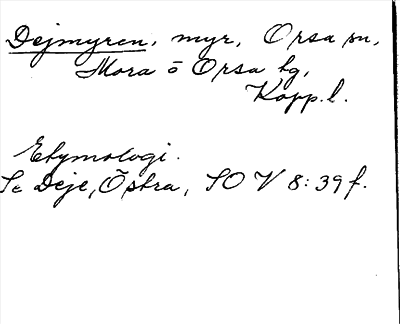 Dejmyren, myr, Orsa sn,
Mora o Orsa tg,
Kopp. l.
Etymologi.
Se Deje, Östra, SOV 8: 39 f.